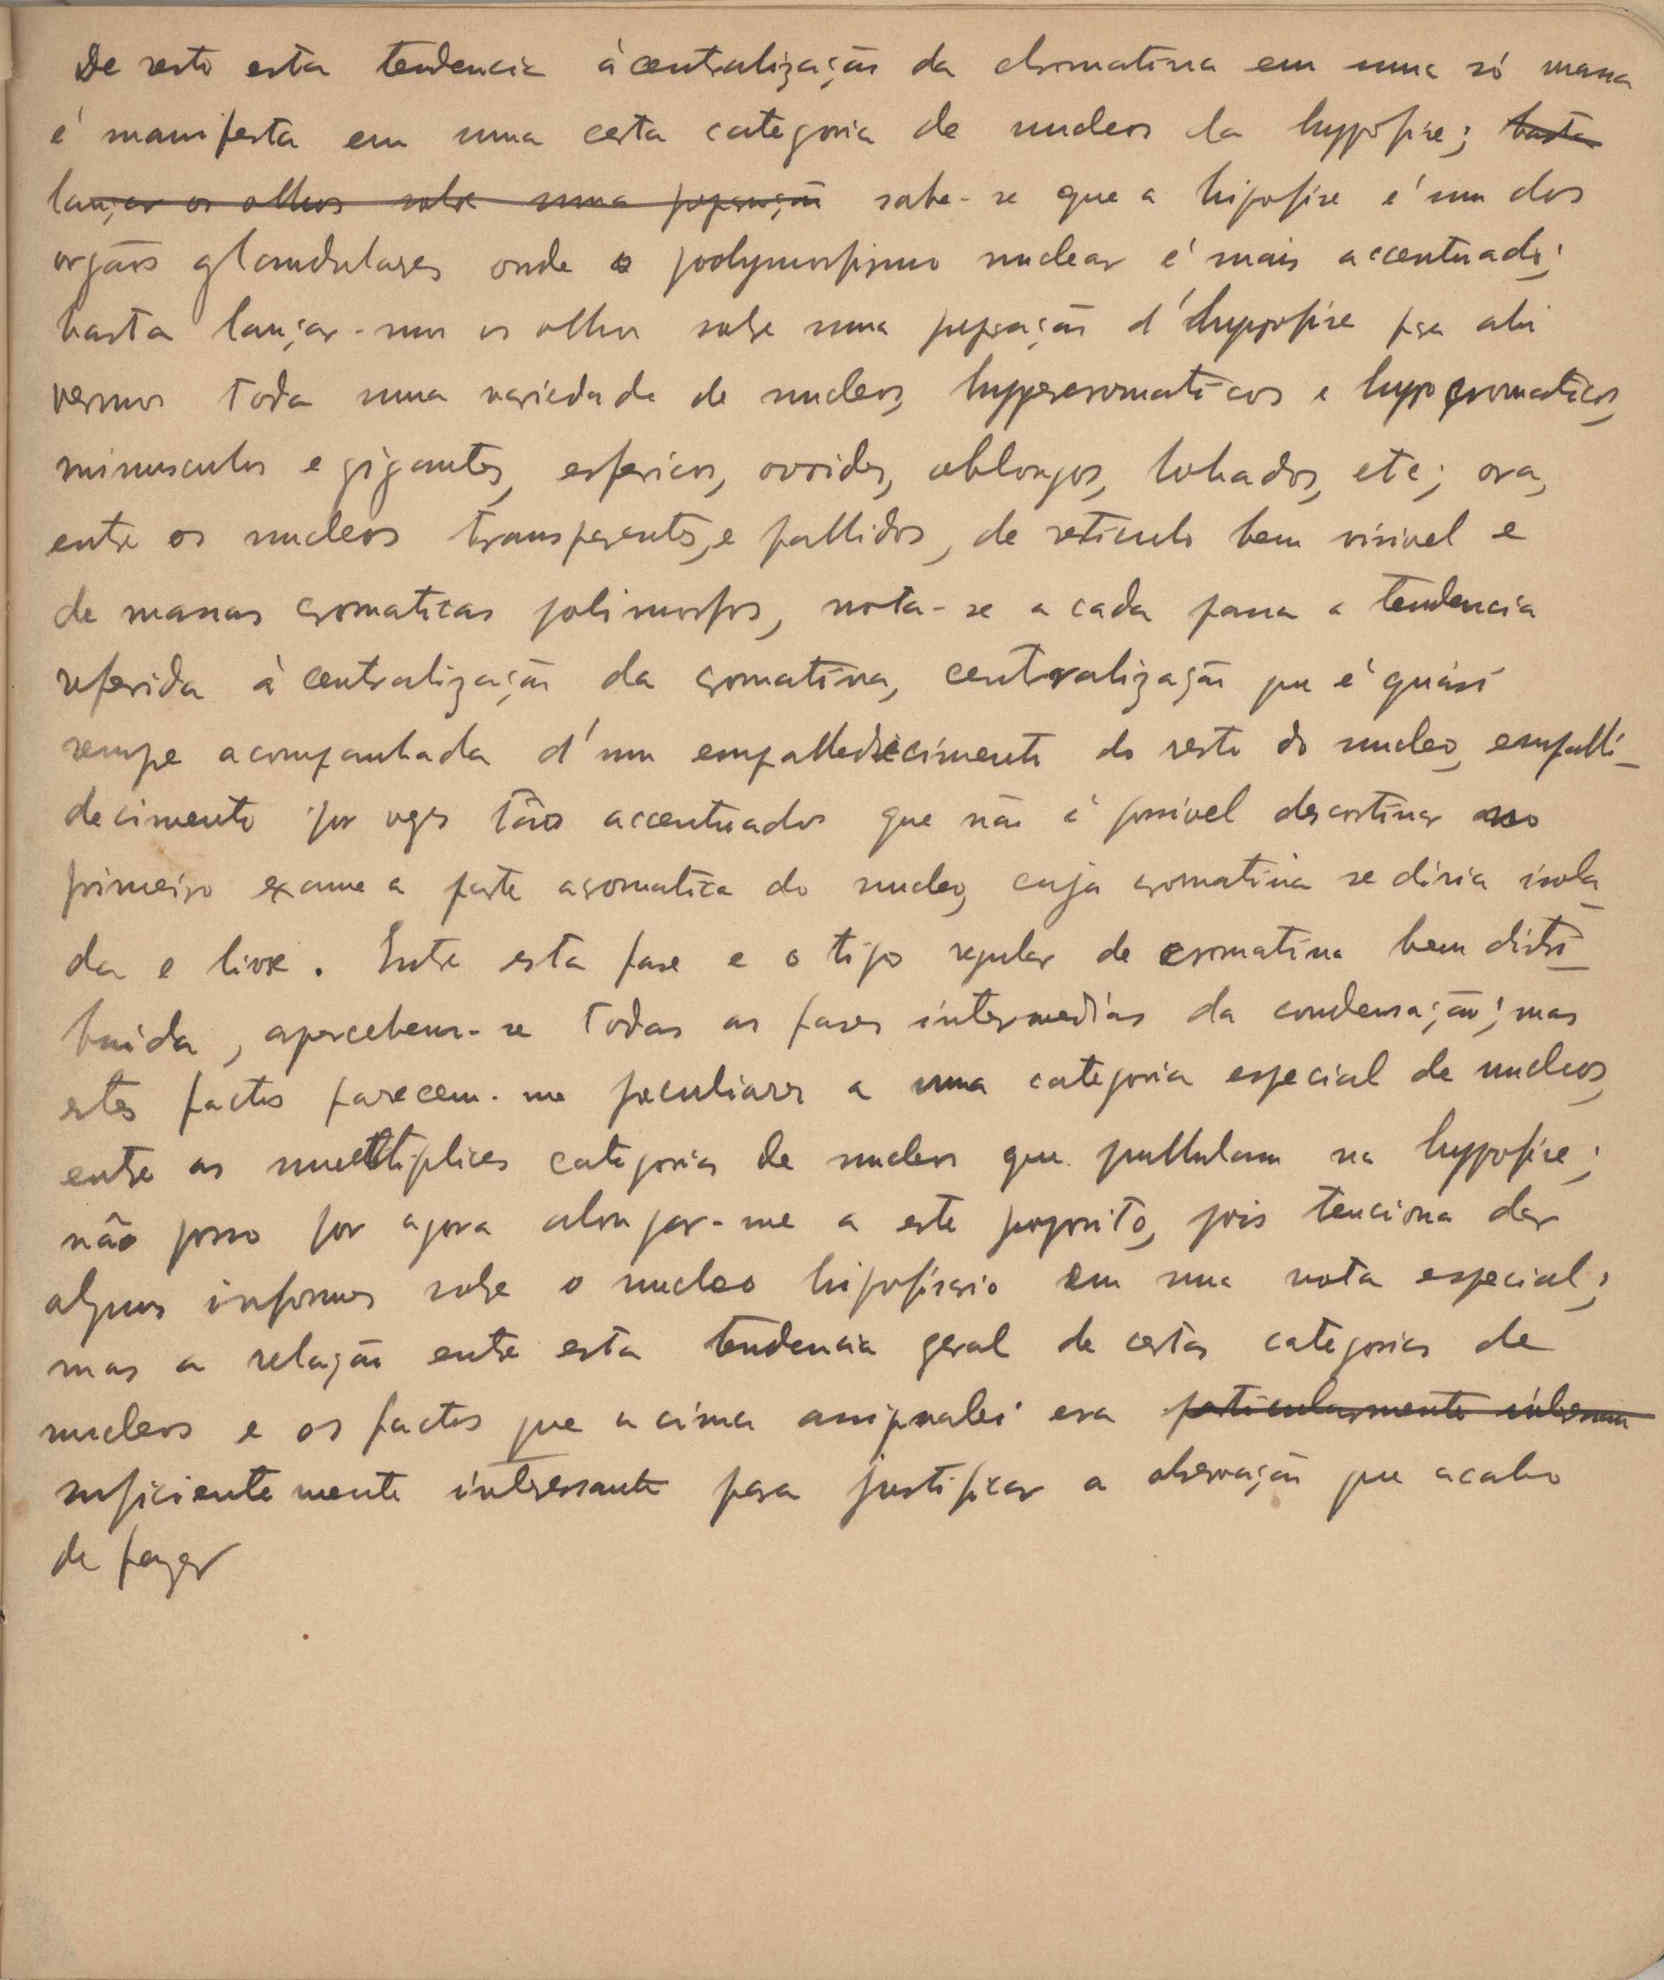 De resto esta tendencia à centralização da chromatina em uma só massa
é manifesta em uma certa categoria de nucleos da hypofise; basta
lançar os olhos sobre uma preparação sabe-se que a hipofise é um dos
orgãos glandulares onde o polymorfismo nuclear é mais accentuado;
basta lançar-mos os olhos sobre uma preparação d'hypofise pra ahi
vermos toda uma variedade de nucleos, hypercromaticos e hypocromaticos,
minusculos e gigantes, esfericos, ovoides, oblongos, lobados, etc; ora,
entre os nucleos transparentes, e pallidos, de reticulo bem visivel e
de massas cromaticas polimorfos, nota-se a cada passo a tendencia
referida à centralização da cromatina, centralização que é quási
sempre acompanhada d'um empalledecimento do resto do nucleo, empalli-
decimento por vezes tão accentuados que não é possivel descortinar no
primeiro exame a parte acromatica do nucleo, cuja cromatina se diria isola-
da e livre. Entre esta fase e o tipo regular de cromatina bem distri-
buida, apercebem-se todas as fases intermedias da condensação; mas
estes factos parecem-me peculiares a uma categoria especial de nucleos,
entre as multiplices categorias de nucleos que pullulam na hypofise;
não posso por agora alongar-me a este proposito, pois tenciono dar
alguns informes sobre o nucleo hipofisario em uma nota especial;
mas a relação entre esta tendencia geral de certas categorias de
nucleos e os factos que acima assignalei era particularmente interessan
suficientemente interessante para justificar a observação que acabo
de fazer